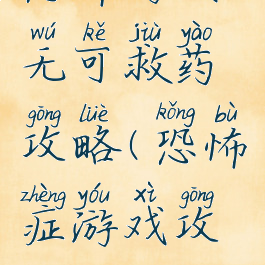 wú kě jiù yào
无可救药
gōng lüè kǒng bù
攻略(恐怖
zhèng yóu xì gōng
症游戏攻